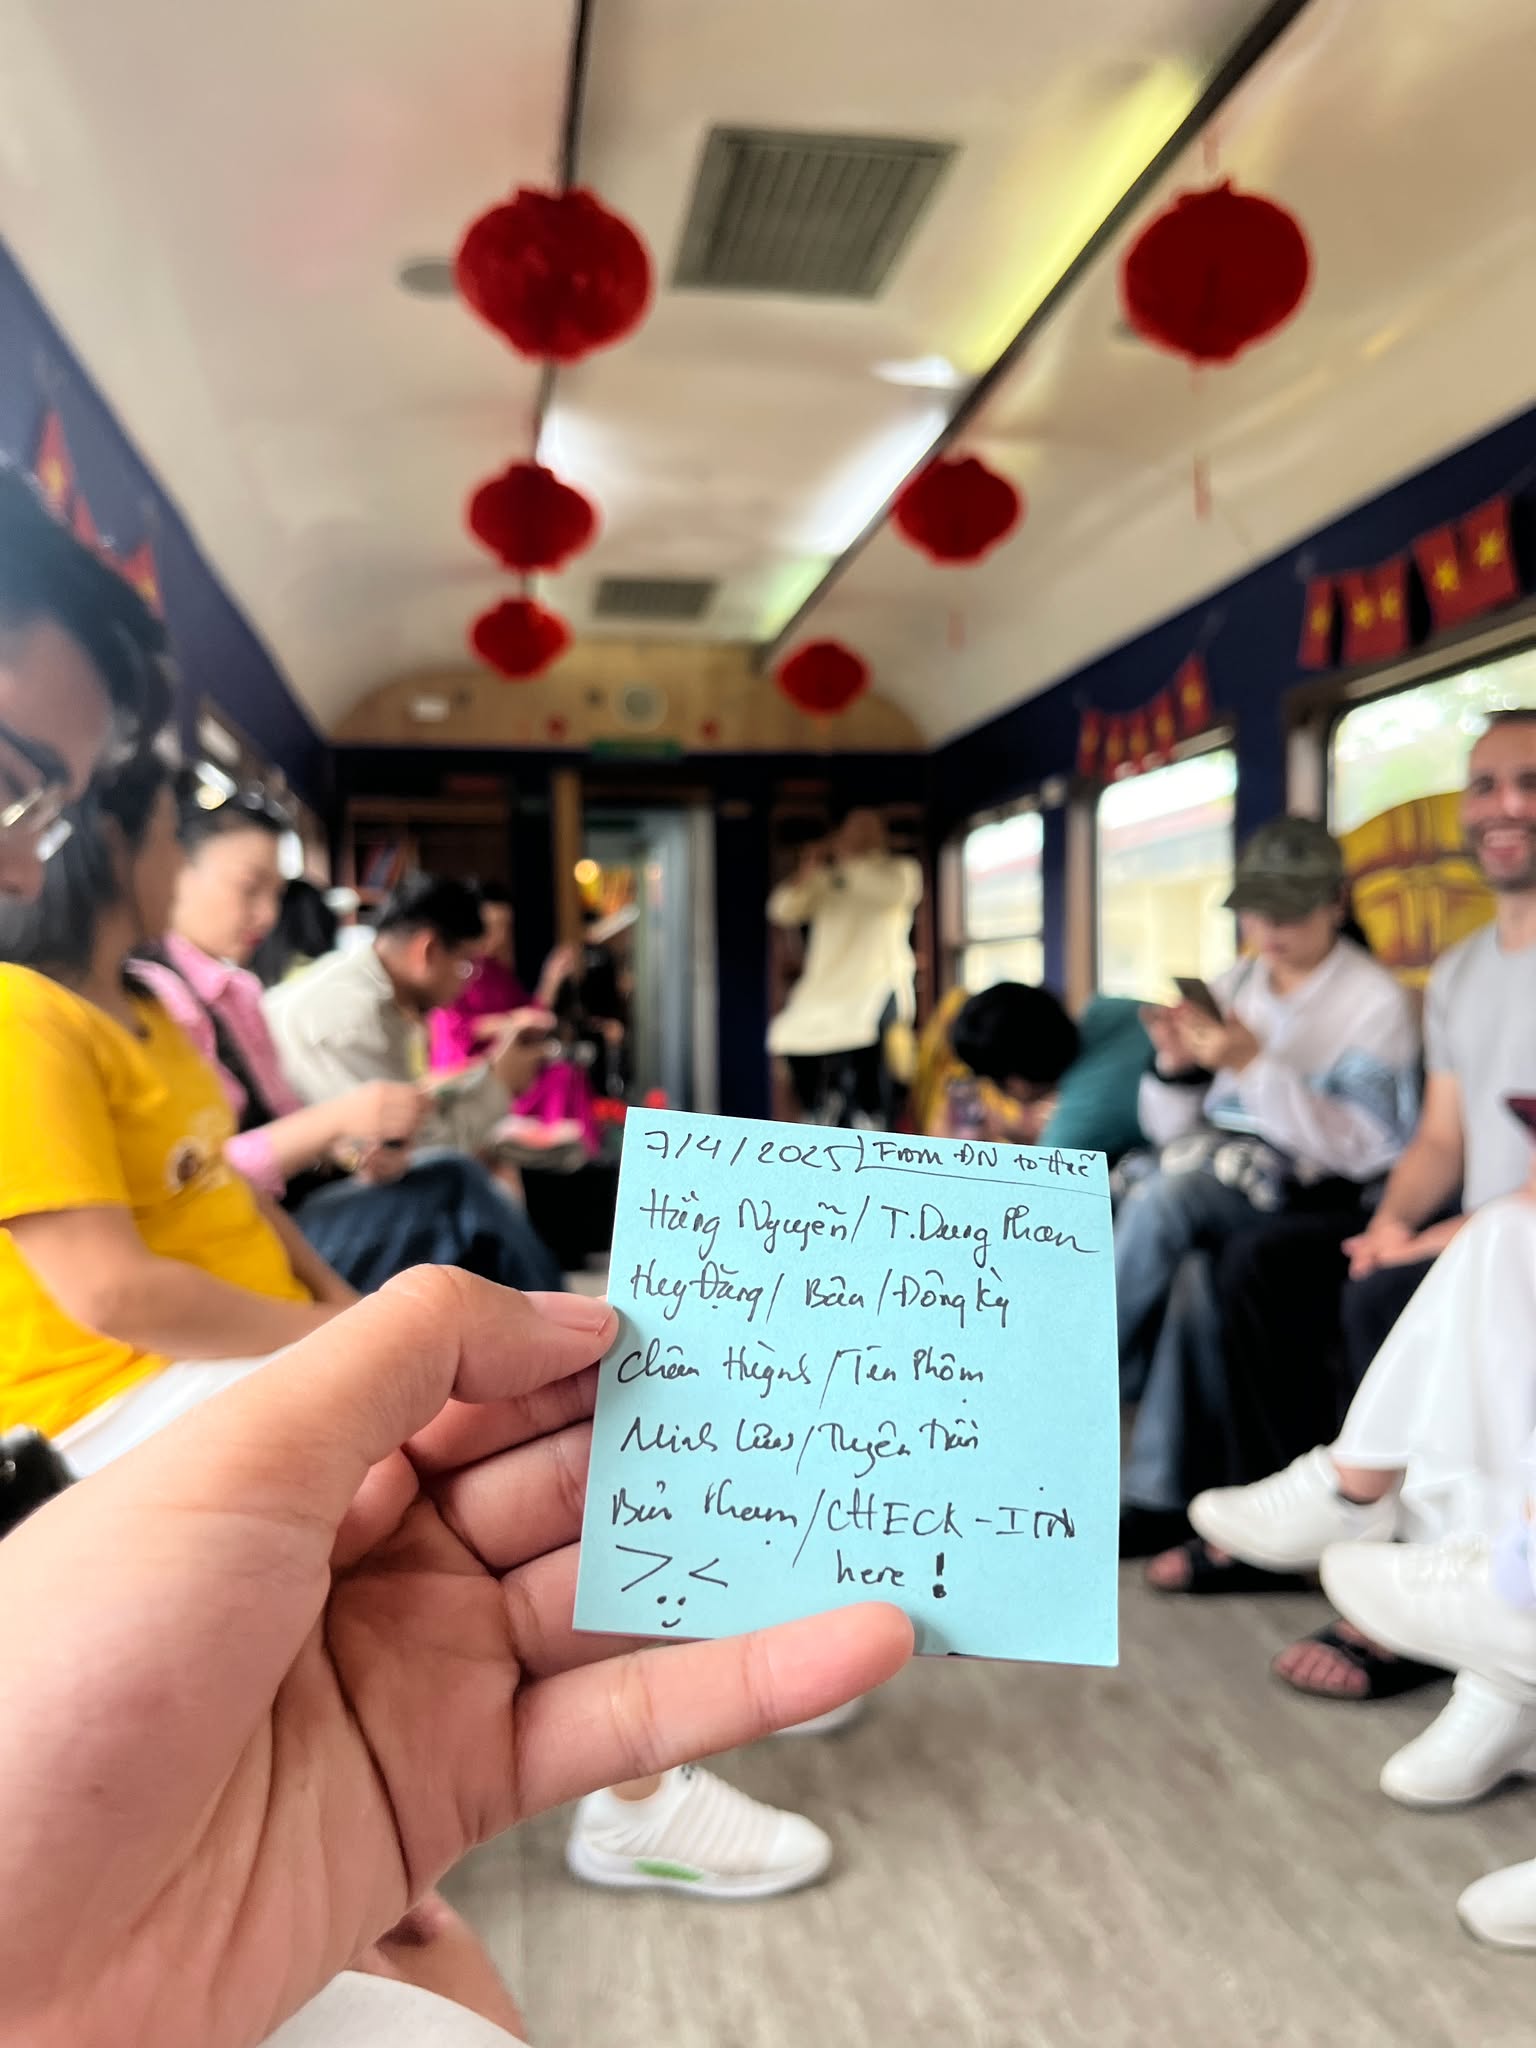 7/4/2025 From ĐN to Huế
Hằng Nguyễn / T. Dung Phan
Huy Đặng / Bâu / Đông Kỳ
Châu Huỳnh / Tên Phôm
Minh Lưu / Thuyên Trần
Bửu Phạm / CHECK-IN
here !